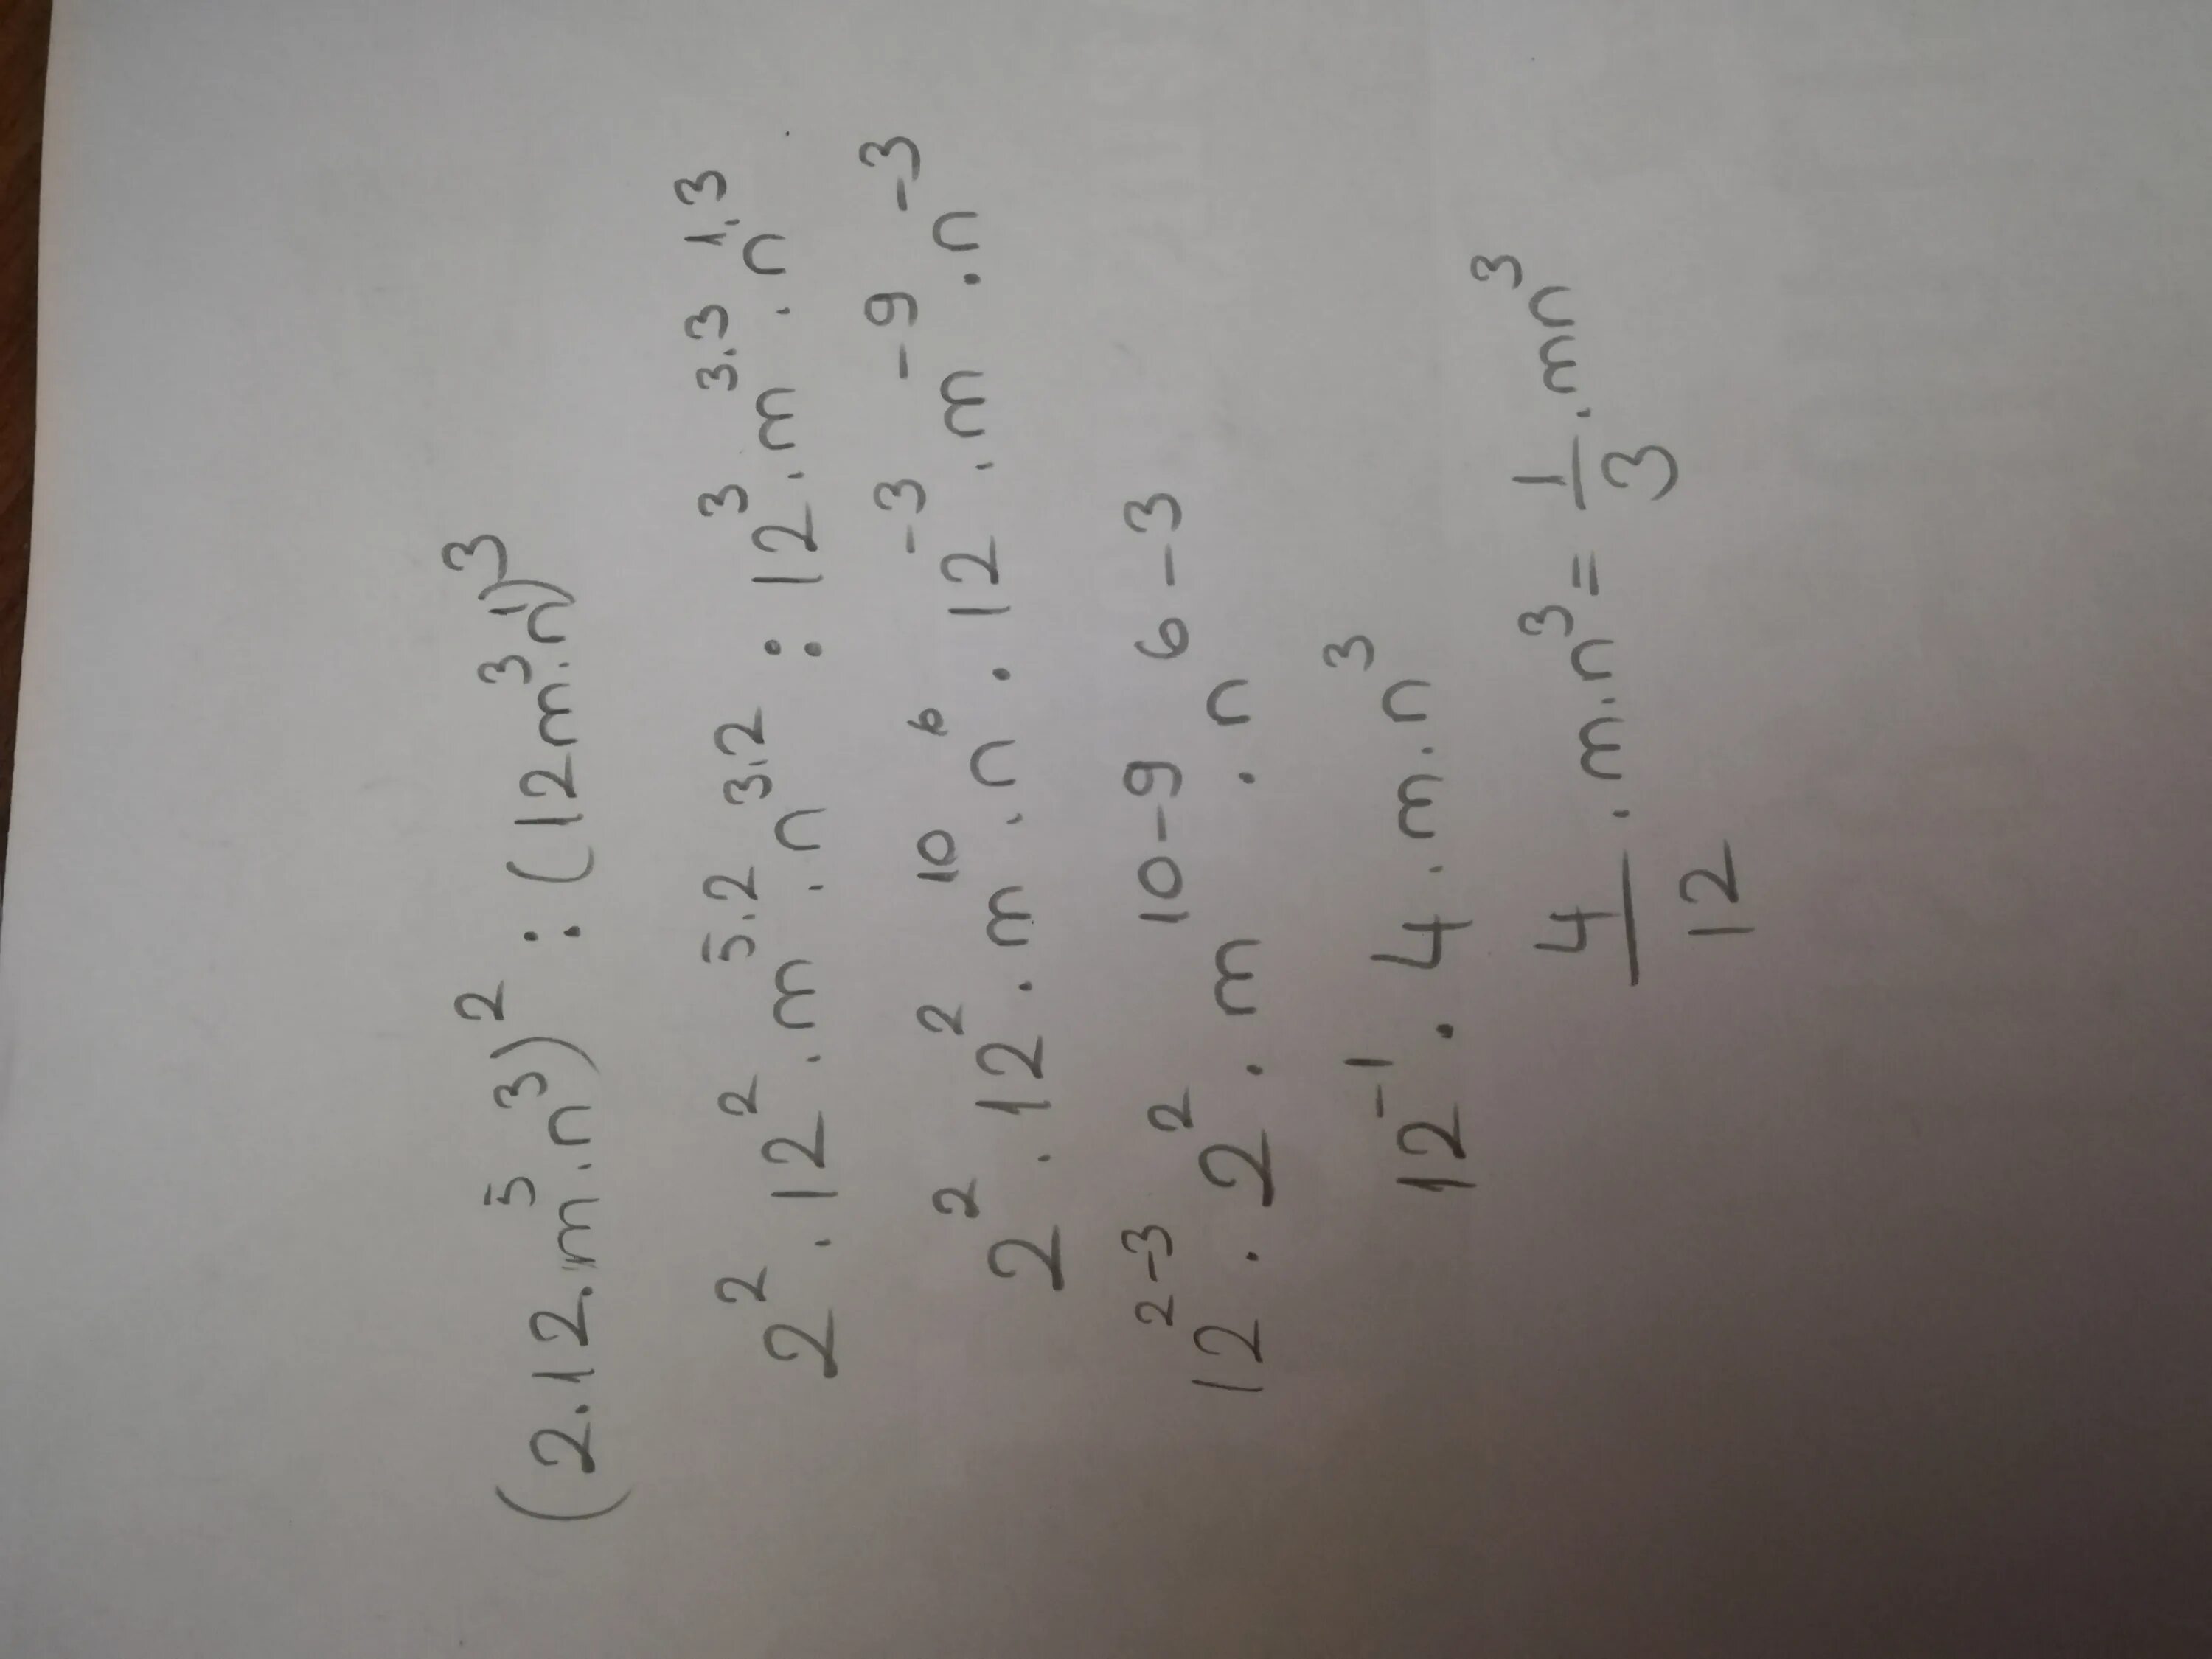 (2.12.m⁵.n³)² : (12m³.n¹)³
2².12².m⁵·².n³·² : 12³.m³·³.n¹·³
2².12².m¹⁰.n⁶.12⁻³.m⁻⁹.n⁻³
12²⁻³.2².m¹⁰⁻⁹.n⁶⁻³
12⁻¹.4.m.n³
4/12.m.n³=1/3.mn³